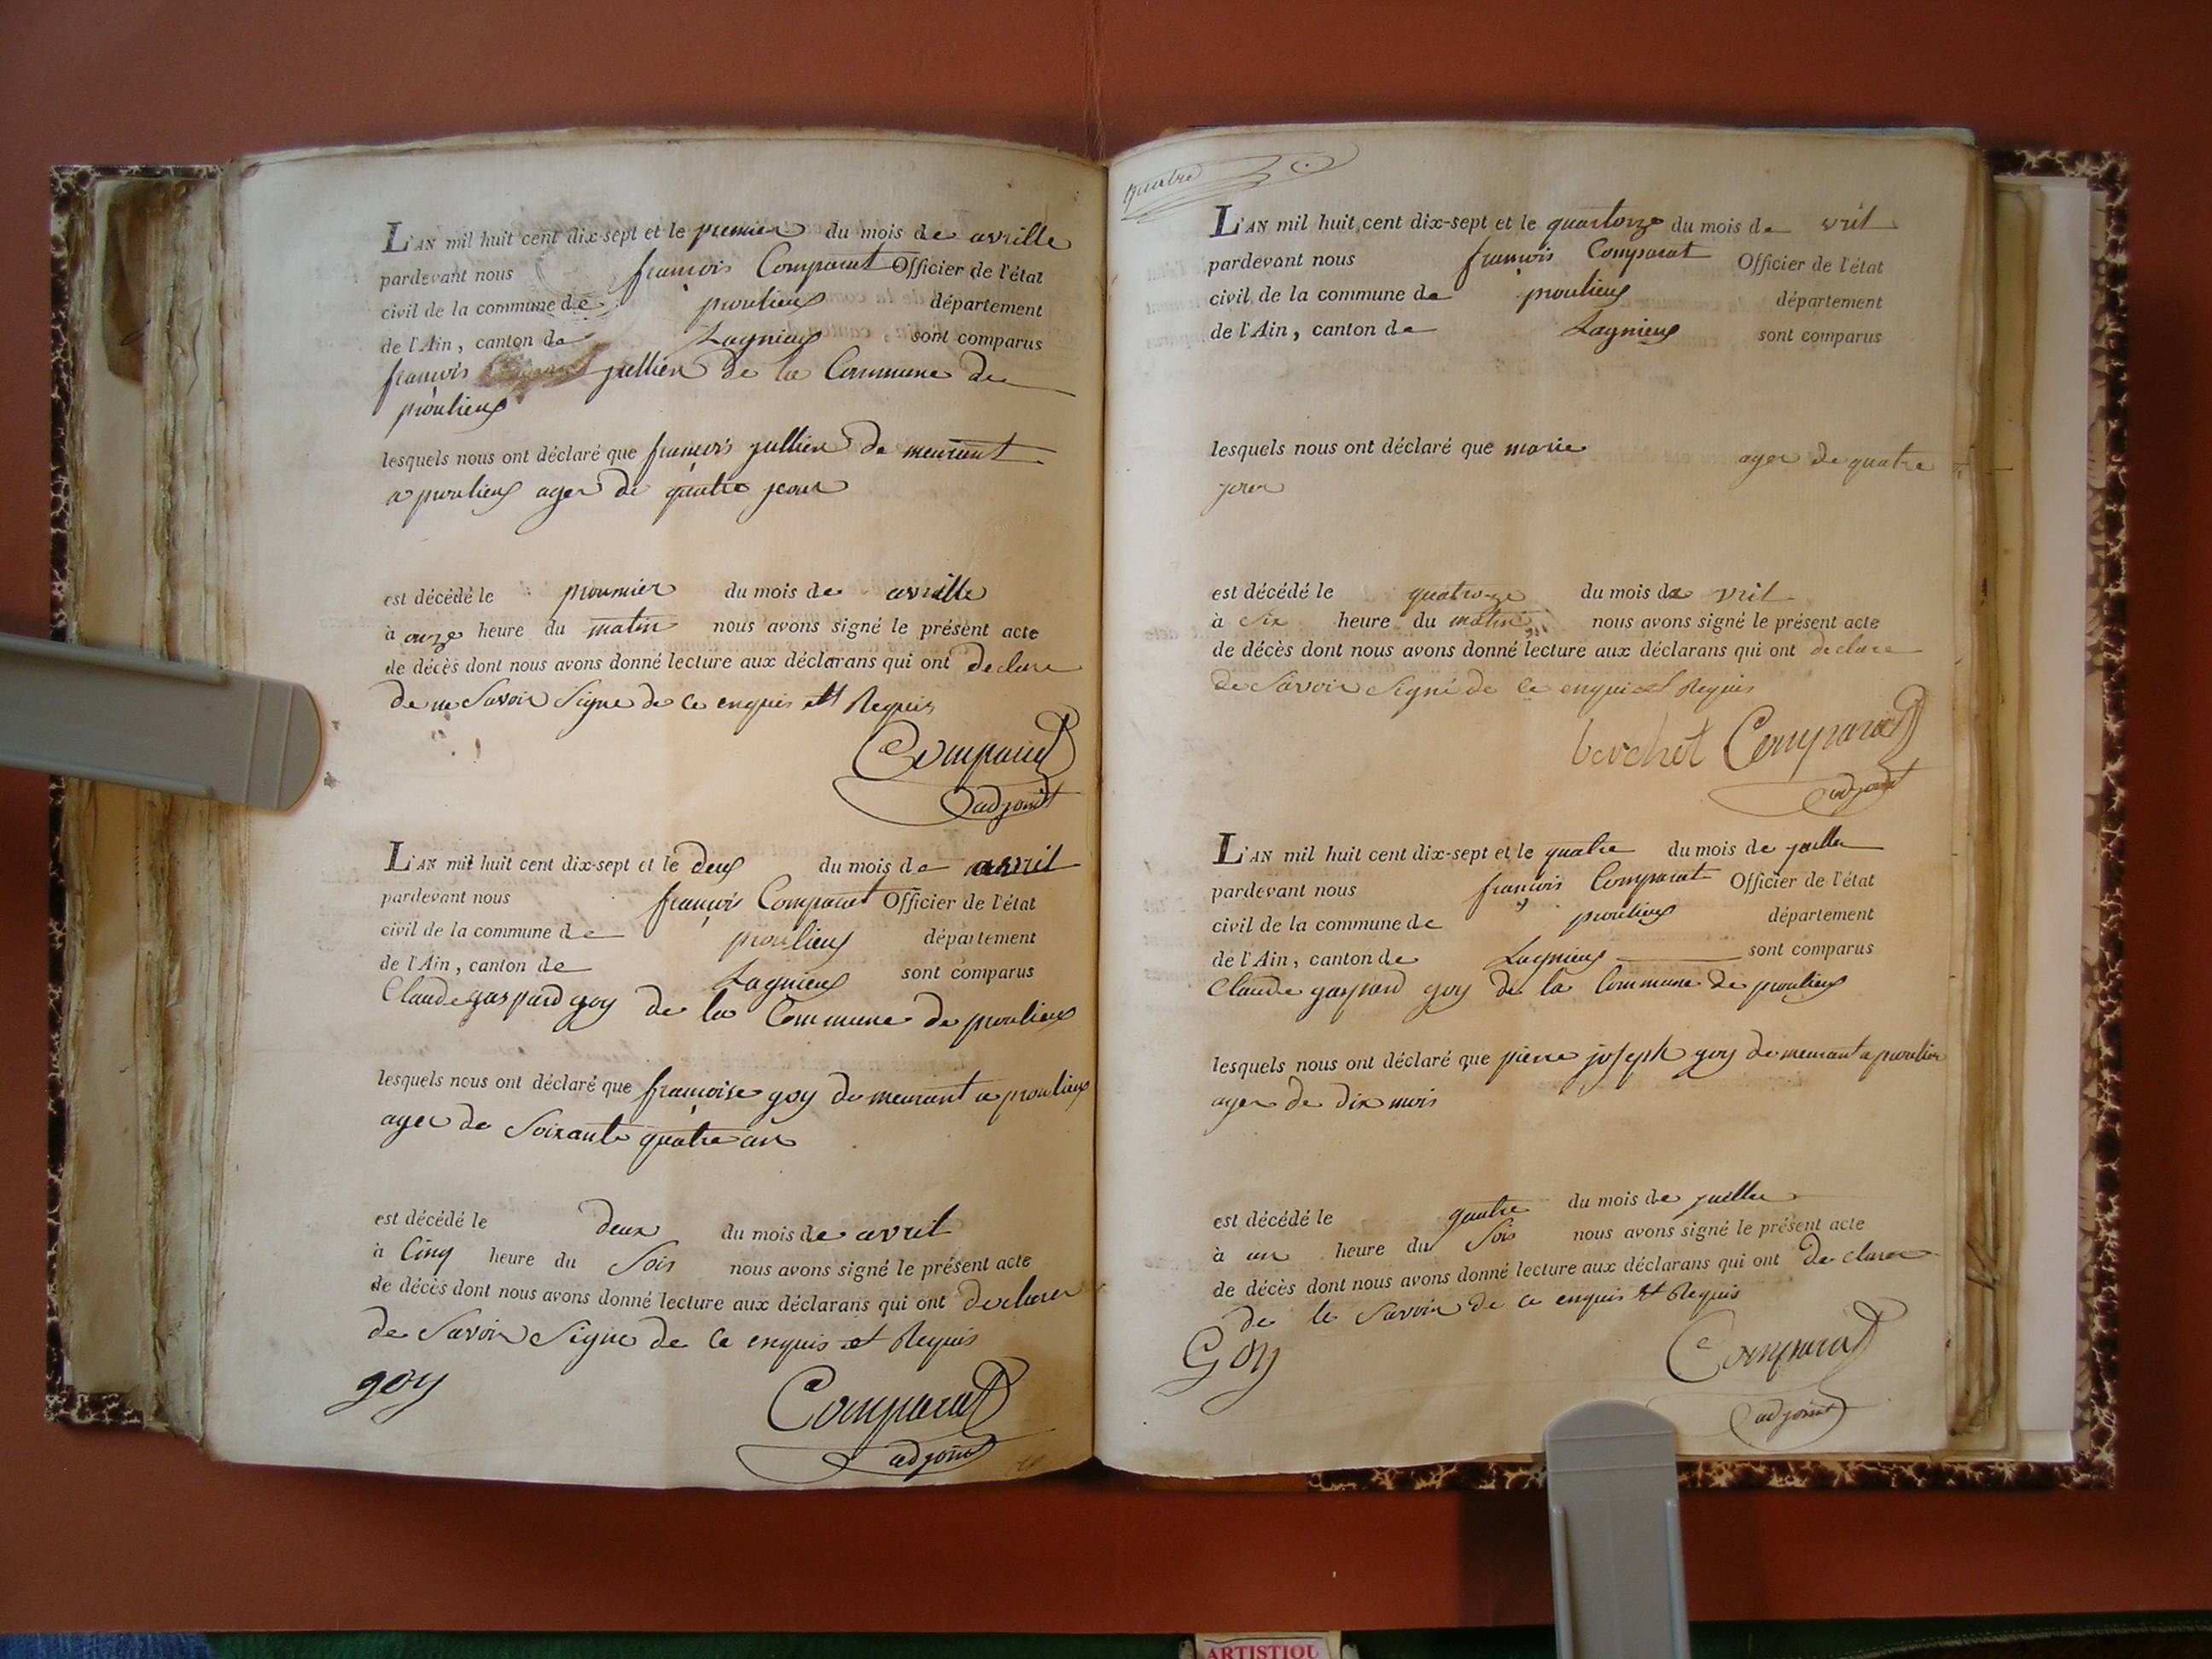 L'AN mil huit cent dix-sept et le premier du mois de avrille
pardevant nous françois Comparat Officier de l'état
civil de la commune de proulieux département
de l'Ain, canton de Lagnieux sont comparus
françois jullien de la Commune de
proulieux
lesquels nous ont déclaré que françois jullien de meurant
a proulieux ager de quatre jour
est décédé le proumier du mois de avrille
à onze heure du matin nous avons signé le présent acte
de décès dont nous avons donné lecture aux déclarans qui ont declare
de ne Savoir Signe de ce enquis et Requis
Comparat
adjoint
L'AN mil huit cent dix-sept et le deux du mois de avril
pardevant nous françois Comparat Officier de l'état
civil de la commune de proulieux département
de l'Ain, canton de Lagnieux sont comparus
Claude gaspard goy de la Commune de proulieux
lesquels nous ont déclaré que françoise goy de meurant a proulieux
ager de Soixante quatre an
est décédé le deux du mois de avril
à Cinq heure du Soir nous avons signé le présent acte
de décès dont nous avons donné lecture aux déclarans qui ont declarer
de Savoir Signe de ce enquis et Requis
goy
Comparat
adjoint
quatre
L'AN mil huit cent dix-sept et le quartorze du mois de vril
pardevant nous françois Comparat Officier de l'état
civil de la commune de proulieux département
de l'Ain, canton de Lagnieux sont comparus
lesquels nous ont déclaré que marie ager de quatre
jour
est décédé le quatroze du mois de vril
à Six heure du matin nous avons signé le présent acte
de décès dont nous avons donné lecture aux déclarans qui ont declare
de Savoir Signé de ce enquis et Requis
berchet Comparat
adjoint
L'AN mil huit cent dix-sept et le quatre du mois de juillet
pardevant nous françois Comparat Officier de l'état
civil de la commune de proulieux département
de l'Ain, canton de Lagnieux sont comparus
Claude gaspard goy de la Commune de proulieux
lesquels nous ont déclaré que pierre joseph goy de meurant a proulieux
ager de dix mois
est décédé le quatre du mois de juillet
à un heure du Soir nous avons signé le présent acte
de décès dont nous avons donné lecture aux déclarans qui ont declarer
de le Savoir de ce enquis et Requis
Goy
Comparat
adjoint
ARTISTIQU